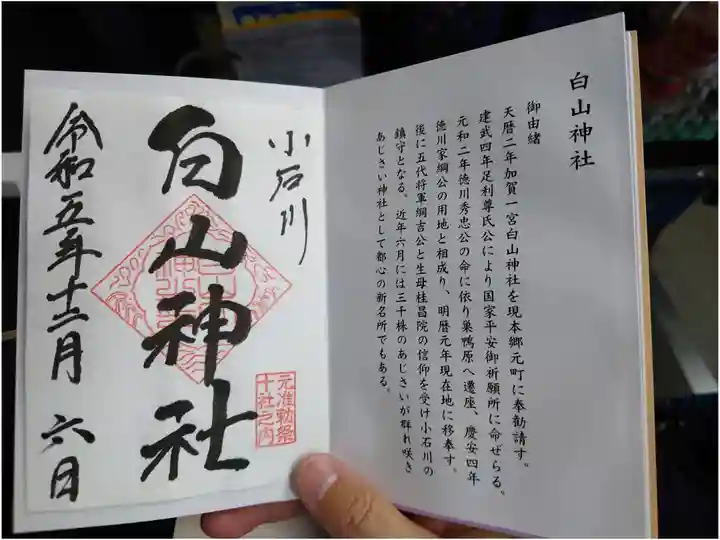 白山神社
御由緒
天暦二年加賀一宮白山神社を現本郷元町に奉勧請す。
建武四年足利尊氏公により国家平安御祈願所に命ぜらる。
元和二年徳川秀忠公の命に依り巣鴨原へ遷座、慶安四年
徳川家綱公の用地と相成り、明暦元年現在地に移奉す。
後に五代将軍綱吉公と生母桂昌院の信仰を受け小石川の
鎮守となる。近年六月には三千株のあじさいが群れ咲き
あじさい神社として都心の新名所でもある。
小石川
元准勅祭
十社之内
白山神社
令和五年十二月 六日